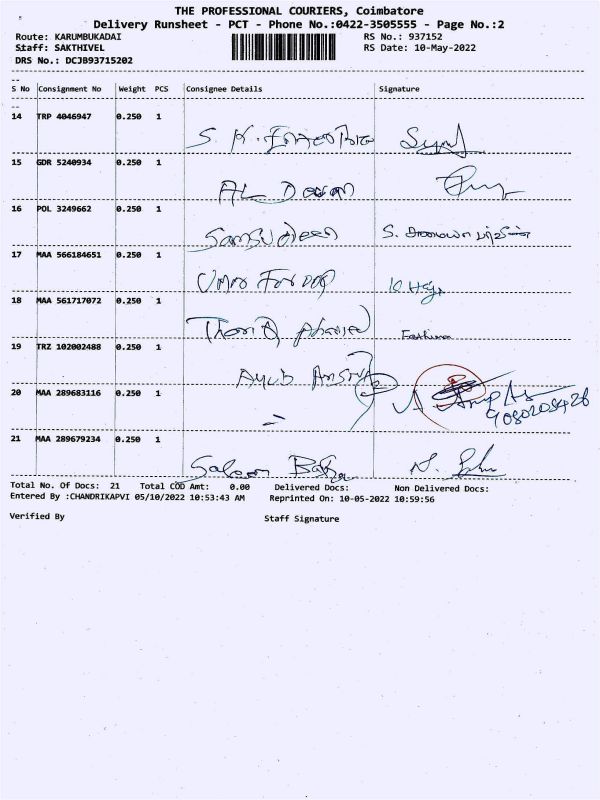 THE PROFESSIONAL COURIERS, Coimbatore
Delivery Runsheet - PCT - Phone No.:0422-3505555 - Page No.:2
Route: KARUMBUKADAI RS No.: 937152
Staff: SAKTHIVEL RS Date: 10-May-2022
DRS No.: DCJB93715202
S No Consignment No Weight PCS Consignee Details Signature
14 TRP 4046947 0.250 1
S. K.
15 GDR 5240934 0.250 1
AL
16 POL 3249662 0.250 1
Samsudeen S.
17 MAA 566184651 0.250 1
Umar Farooq
18 MAA 561717072 0.250 1
Fathima
19 TRZ 102002488 0.250 1
Ayub
20 MAA 289683116 0.250 1
21 MAA 289679234 0.250 1
N.
Total No. Of Docs: 21 Total COD Amt: 0.00 Delivered Docs: Non Delivered Docs:
Entered By :CHANDRIKAPVI 05/10/2022 10:53:43 AM Reprinted On: 10-05-2022 10:59:56
Verified By Staff Signature